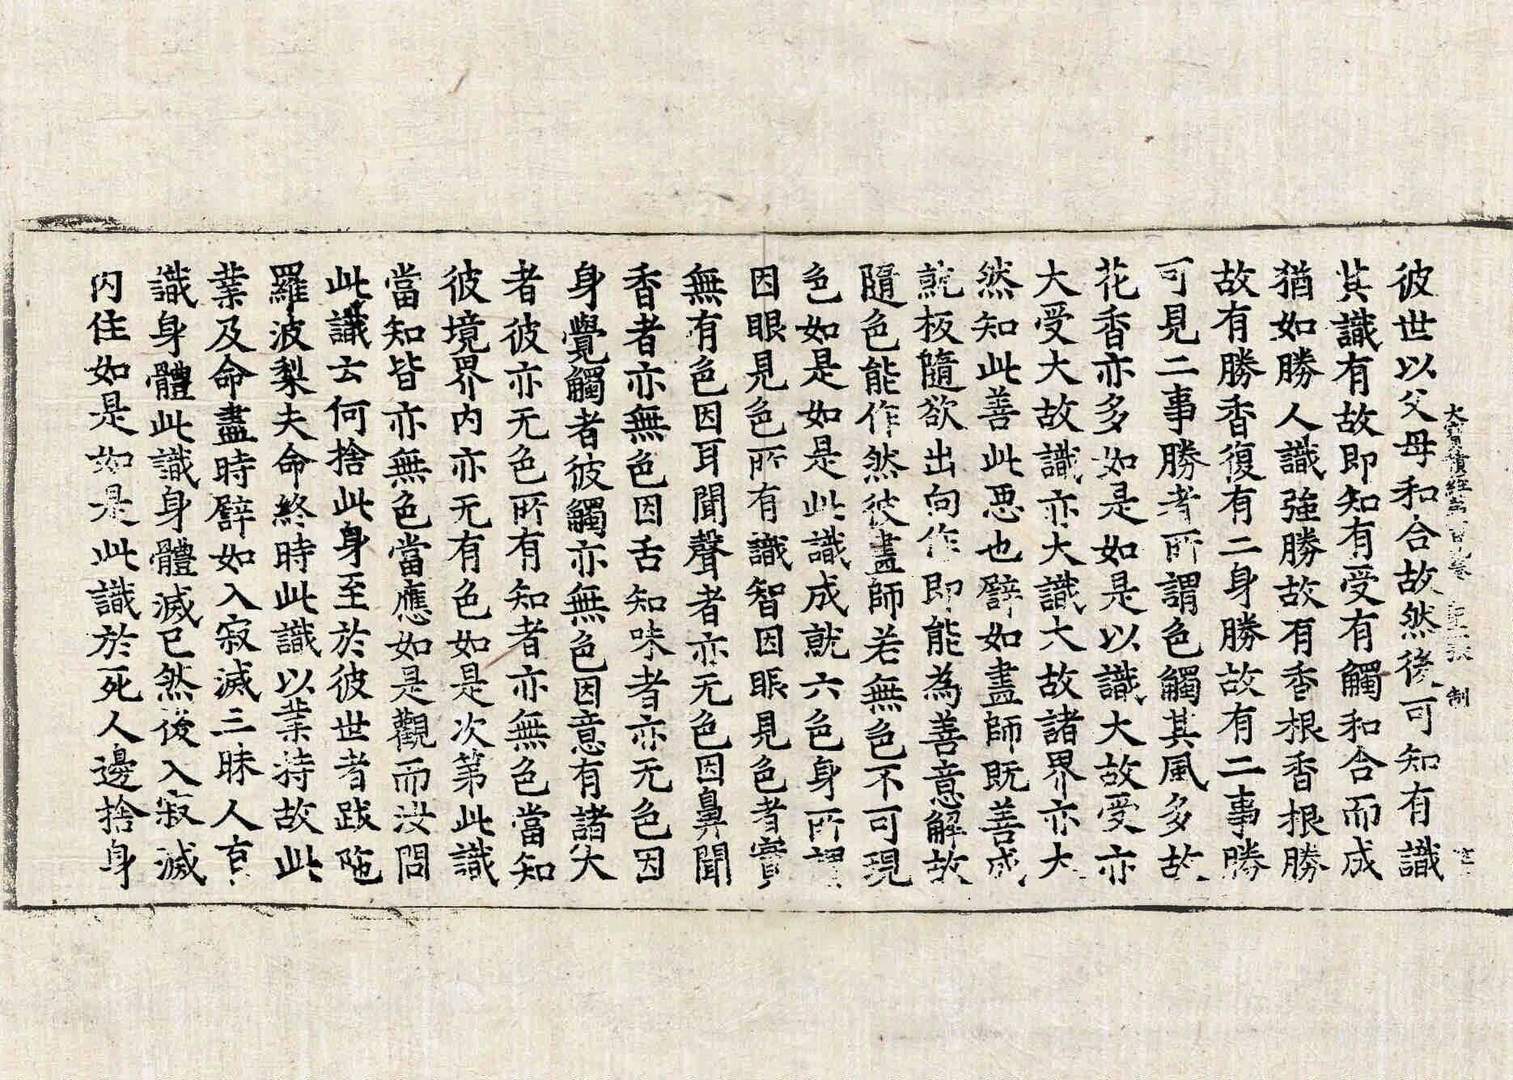 大寶積經第一百九卷
彼世以父母和合故然後可知有識
其識有故即知有受有觸和合而成
猶如勝人識強勝故有香根香根勝
故有勝香復有二身勝故有二事勝
可見二事勝者所謂色觸其風多故
花香亦多如是如是以識大故受亦
大受大故識亦大識大故諸界亦大
然知此善此惡也譬如畫師既善成
就板隨欲出向作即能為善意解故
隨色能作然彼畫師若無色不可現
色如是如是此識成就六色身所謂
因眼見色所有識智因眼見色者實
無有色因耳聞聲者亦无色因鼻聞
香者亦無色因舌知味者亦无色因
身覺觸者彼觸亦無色因意有諸大
者彼亦无色所有知者亦無色當知
彼境界內亦无有色如是次第此識
當知皆亦無色當應如是觀而汝問
此識云何捨此身至於彼世者跋陁
羅波梨夫命終時此識以業持故此
業及命盡時譬如入寂滅三昧人有
識身體此識身體滅已然後入寂滅
內住如是如是此識於死人邊捨身